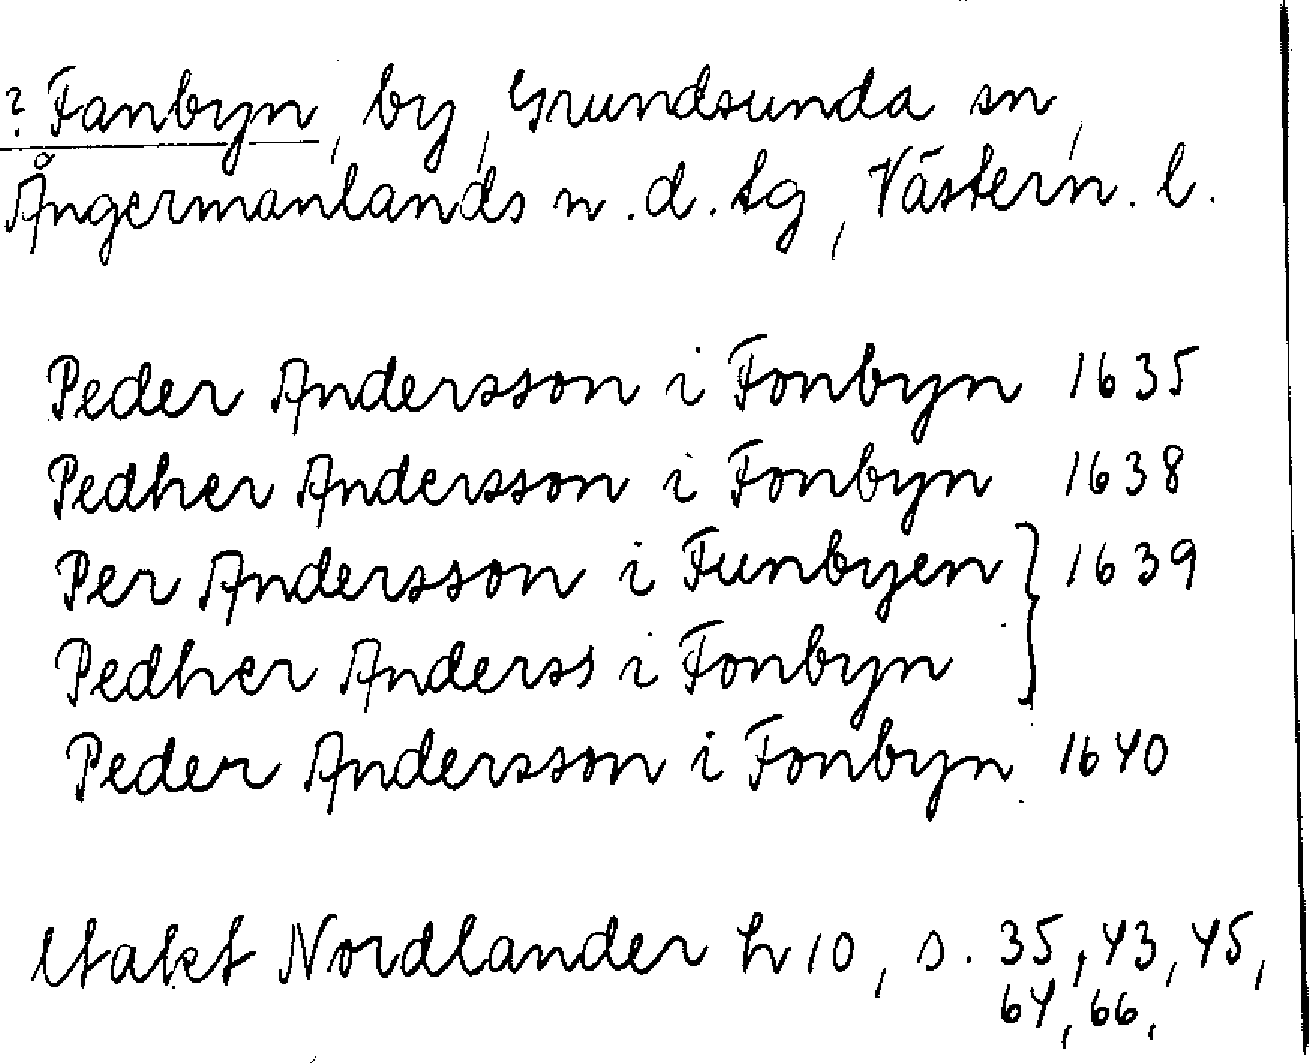 ? Fanbyn, by, Grundsunda sn,
Ångermanlands n. d. tg, Västern. l.
Peder Andersson i Fonbyn 1635
Pedher Andersson i Fonbyn 1638
Per Andersson i Funbyen } 1639
Pedher Anderss i Fonbyn
Peder Andersson i Fonbyn 1640
Utakt Nordlander h 10, s. 35, 43, 45,
64, 66.